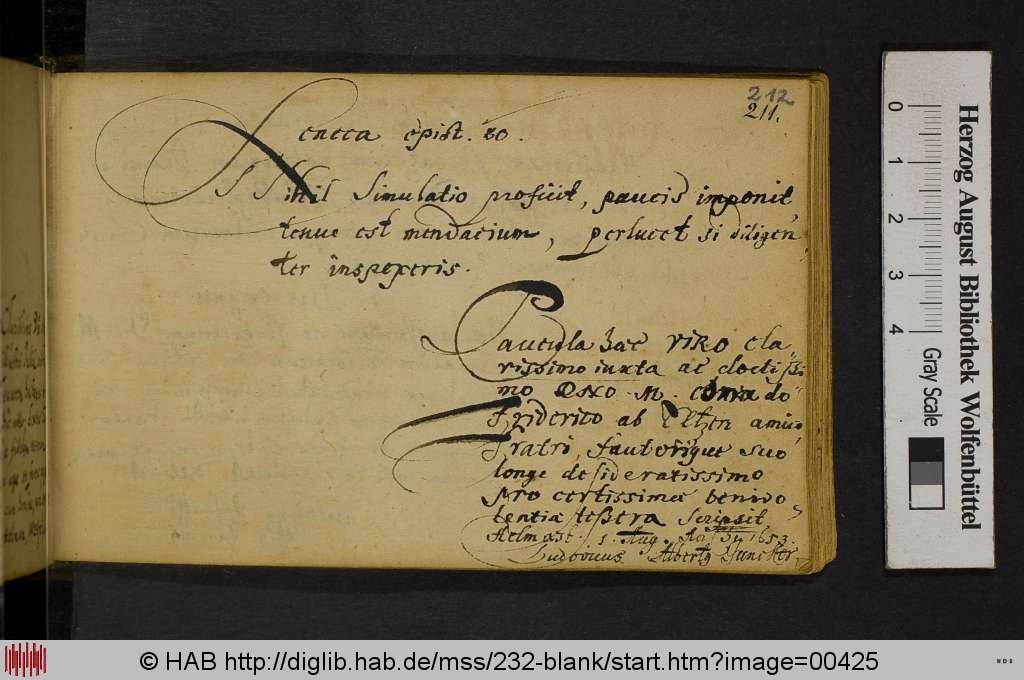 212
211.
Seneca epist. 80.
Nihil Simulatio proficit, paucis imponit,
tenue est mendacium, perlucet si diligen
ter inspexeris.
Paucula hac VIRO Cla
rissimo iuxta ac doctissi
mo DNO M. Conrado
Friderico ab Eltzen amico
Fratri, Fautorique suo
longe desideratissimo
pro certissima benivo
lentiæ tessera Scripsit
Helmæst. 1. Aug. 1653.
Ludovicus Alberty
0
1
2
3
4
Gray Scale
Herzog August Bibliothek Wolfenbüttel
© HAB http://diglib.hab.de/mss/232-blank/start.htm?image=00425